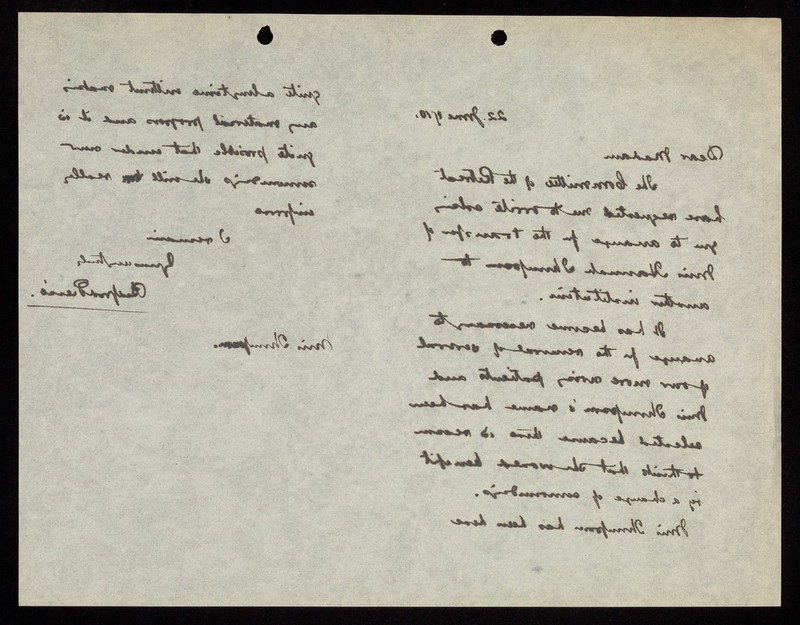 22. June 1910.
Dear Madam
The Committee of the Retreat
have requested me to write asking
you to arrange for the transfer of
Miss Hannah Thompson to
another institution.
It has become necessary to
arrange for the removal of several
of our more noisy patients and
Miss Thompson's name has been
selected because there is reason
to think that she would benefit
by a change of surroundings.
Miss Thompson has been here
quite a long time without making
any material progress and it is
quite possible that under new
surroundings she will really
improve
I remain
Yours truly
Miss Thompson.